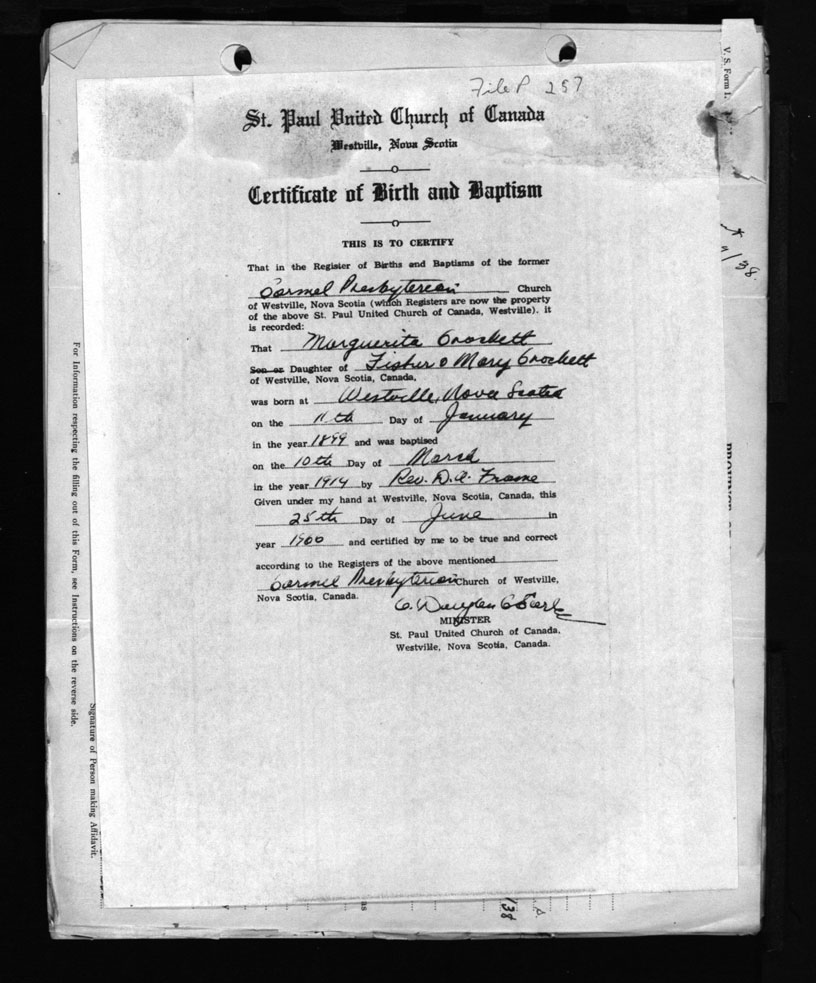 File P 257
St. Paul United Church of Canada
Westville, Nova Scotia
Certificate of Birth and Baptism
THIS IS TO CERTIFY
That in the Register of Births and Baptisms of the former
Carmel Presbyterian Church
of Westville, Nova Scotia (which Registers are now the property
of the above St. Paul United Church of Canada, Westville). it
is recorded:
That Marguerita Crockett
Son or Daughter of Fisher & Mary Crockett
of Westville, Nova Scotia, Canada,
was born at Westville, Nova Scotia
on the 11th Day of January
in the year 1899 and was baptised
on the 10th Day of March
in the year 1914 by Rev. D. A. Frame
Given under my hand at Westville, Nova Scotia, Canada, this
25th Day of June in
year 1960 and certified by me to be true and correct
according to the Registers of the above mentioned
Carmel Presbyterian Church of Westville,
Nova Scotia, Canada.
MINISTER
St. Paul United Church of Canada,
Westville, Nova Scotia, Canada.
For Information respecting the filling out of this Form, see Instructions on the reverse side.
Signature of Person making Affidavit.
V. S. Form
138